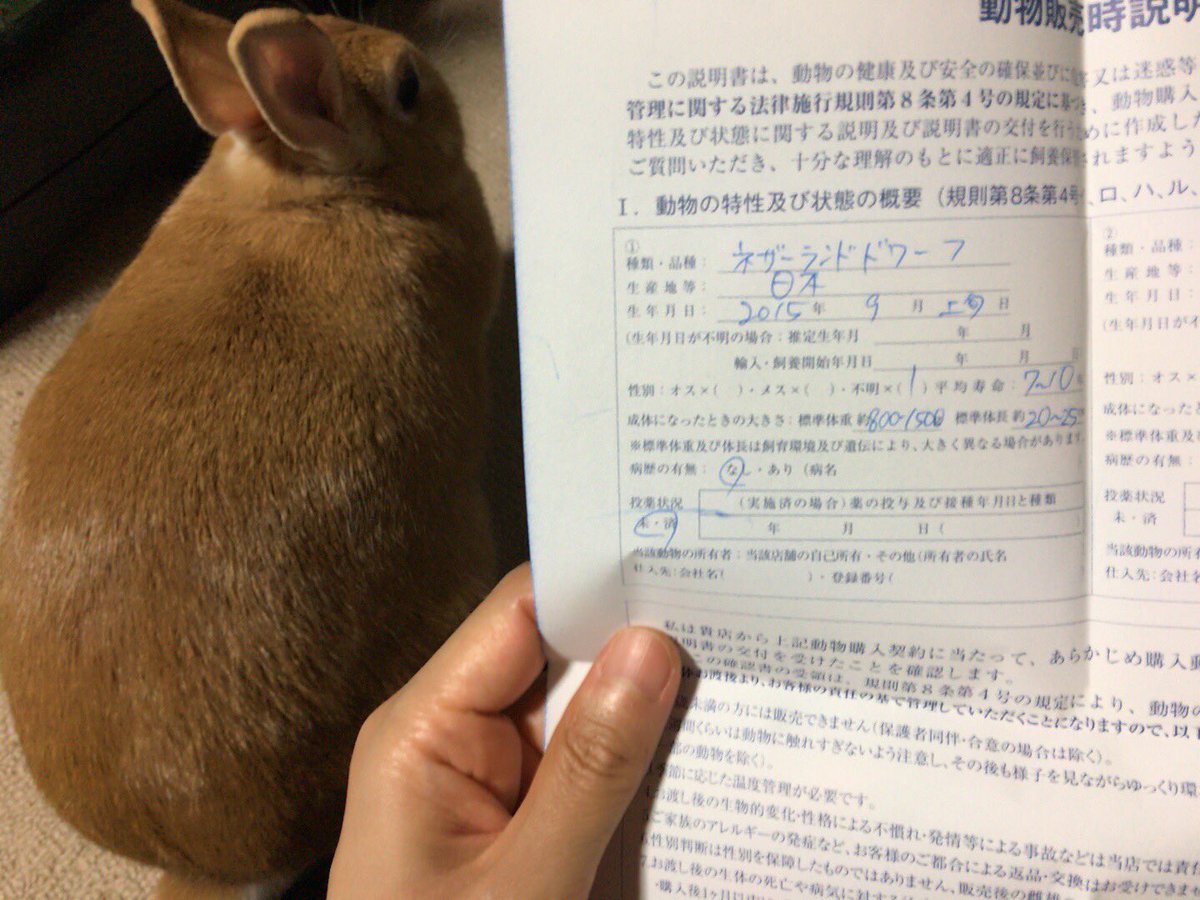 動物販売時説明
この説明書は、動物の健康及び安全の確保並びに 又は迷惑等
管理に関する法律施行規則第8条第4号の規定に基づき、動物購入
特性及び状態に関する説明及び説明書の交付を行うために作成した
ご質問いただき、十分な理解のもとに適正に飼養保管されますよう
I. 動物の特性及び状態の概要(規則第8条第4号 、ロ、ハ、ル、
① ②
種類・品種: ネザーランドドワーフ 種類・品種:
生産地等: 日本 生産地等:
生年月日: 2015年 9月 上旬日 生年月日:
(生年月日が不明の場合:推定生年月 年 月 (生年月日が不
輸入・飼養開始年月日 年 月 日
性別:オス×( )・メス×( )・不明×(1) 平均寿命:7~10年 性別:オス×
成体になったときの大きさ:標準体重 約800~1500 標準体長 約20~25 成体になった
※標準体重及び体長は飼育環境及び遺伝により、大きく異なる場合があります。 ※標準体重及
病歴の有無: なし・あり(病名 病歴の有無:
投薬状況 (実施済の場合)薬の投与及び接種年月日と種類 投薬状況
未・済 年 月 日( 未・済
当該動物の所有者:当該店舗の自己所有・その他(所有者の氏名 当該動物の所有
仕入先:会社名( )・登録番号( 仕入先:会社名
私は貴店から上記動物購入契約に当たって、あらかじめ購入動
明書の交付を受けたことを確認します。
この確認書の受領は、規則第8条第4号の規定により、動物の
体お渡後より、お客様の責任の基で管理していただくことになりますので、以下
歳未満の方には販売できません(保護者同伴・合意の場合は除く)。
間くらいは動物に触れすぎないよう注意し、その後も様子を見ながらゆっくり環
部の動物を除く)。
季節に応じた温度管理が必要です。
お渡し後の生物的変化・性格による不慣れ・発情等による事故などは当店では責任
ご家族のアレルギーの発症など、お客様のご都合による返品・交換はお受けできませ
性別判断は性別を保障したものではありません、販売後の雌雄
お渡し後の生体の死亡や病気に対する
・購入後1ヶ月以内